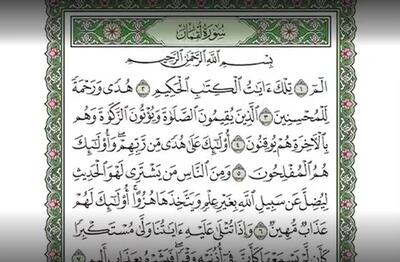 سُورَةُ لُقْمَانَ
بِسْمِ اللَّهِ الرَّحْمَٰنِ الرَّحِيمِ
الٓمٓ ١ تِلْكَ ءَايَٰتُ ٱلْكِتَٰبِ ٱلْحَكِيمِ ٢ هُدًى وَرَحْمَةً
لِّلْمُحْسِنِينَ ٣ ٱلَّذِينَ يُقِيمُونَ ٱلصَّلَوٰةَ وَيُؤْتُونَ ٱلزَّكَوٰةَ وَهُم
بِٱلْءَاخِرَةِ هُمْ يُوقِنُونَ ٤ أُو۟لَٰٓئِكَ عَلَىٰ هُدًى مِّن رَّبِّهِمْ ۖ وَأُو۟لَٰٓئِكَ
هُمُ ٱلْمُفْلِحُونَ ٥ وَمِنَ ٱلنَّاسِ مَن يَشْتَرِى لَهْوَ ٱلْحَدِيثِ
لِيُضِلَّ عَن سَبِيلِ ٱللَّهِ بِغَيْرِ عِلْمٍ وَيَتَّخِذَهَا هُزُوًا ۚ أُو۟لَٰٓئِكَ لَهُمْ
عَذَابٌ مُّهِينٌ ٦ وَإِذَا تُتْلَىٰ عَلَيْهِ ءَايَٰتُنَا وَلَّىٰ مُسْتَكْبِرًا
كَأَن لَّمْ يَسْمَعْهَا كَأَنَّ فِىٓ أُذُنَيْهِ وَقْرًا ۖ فَبَشِّرْهُ بِعَذَابٍ أَلِيمٍ